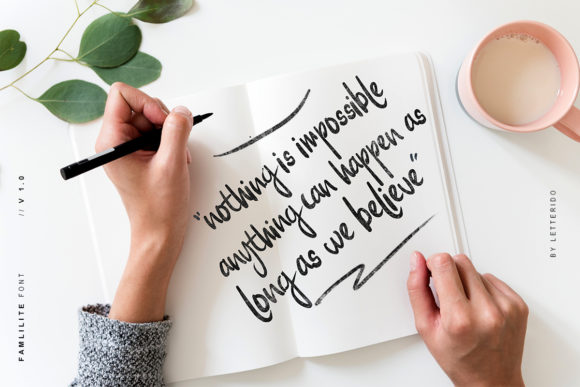 "nothing is impossible
anything can happen as
long as we believe"
FAMLILITE FONT // V 1.0
BY LETTERIDO